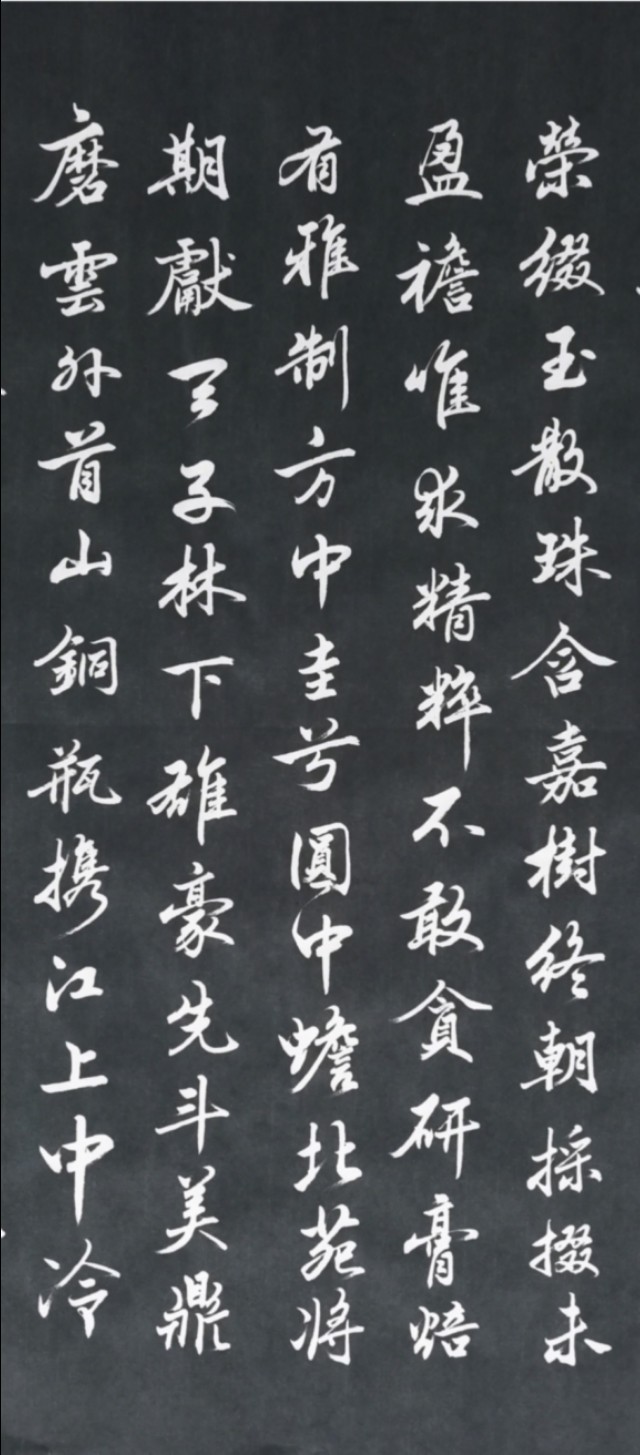 榮綴玉散珠含嘉樹終朝採掇未
盈襜唯求精粹不敢貪研膏焙
有雅制方中圭兮圓中蟾北苑將
期獻天子林下雄豪先斗美鼎
磨雲外首山銅瓶携江上中冷